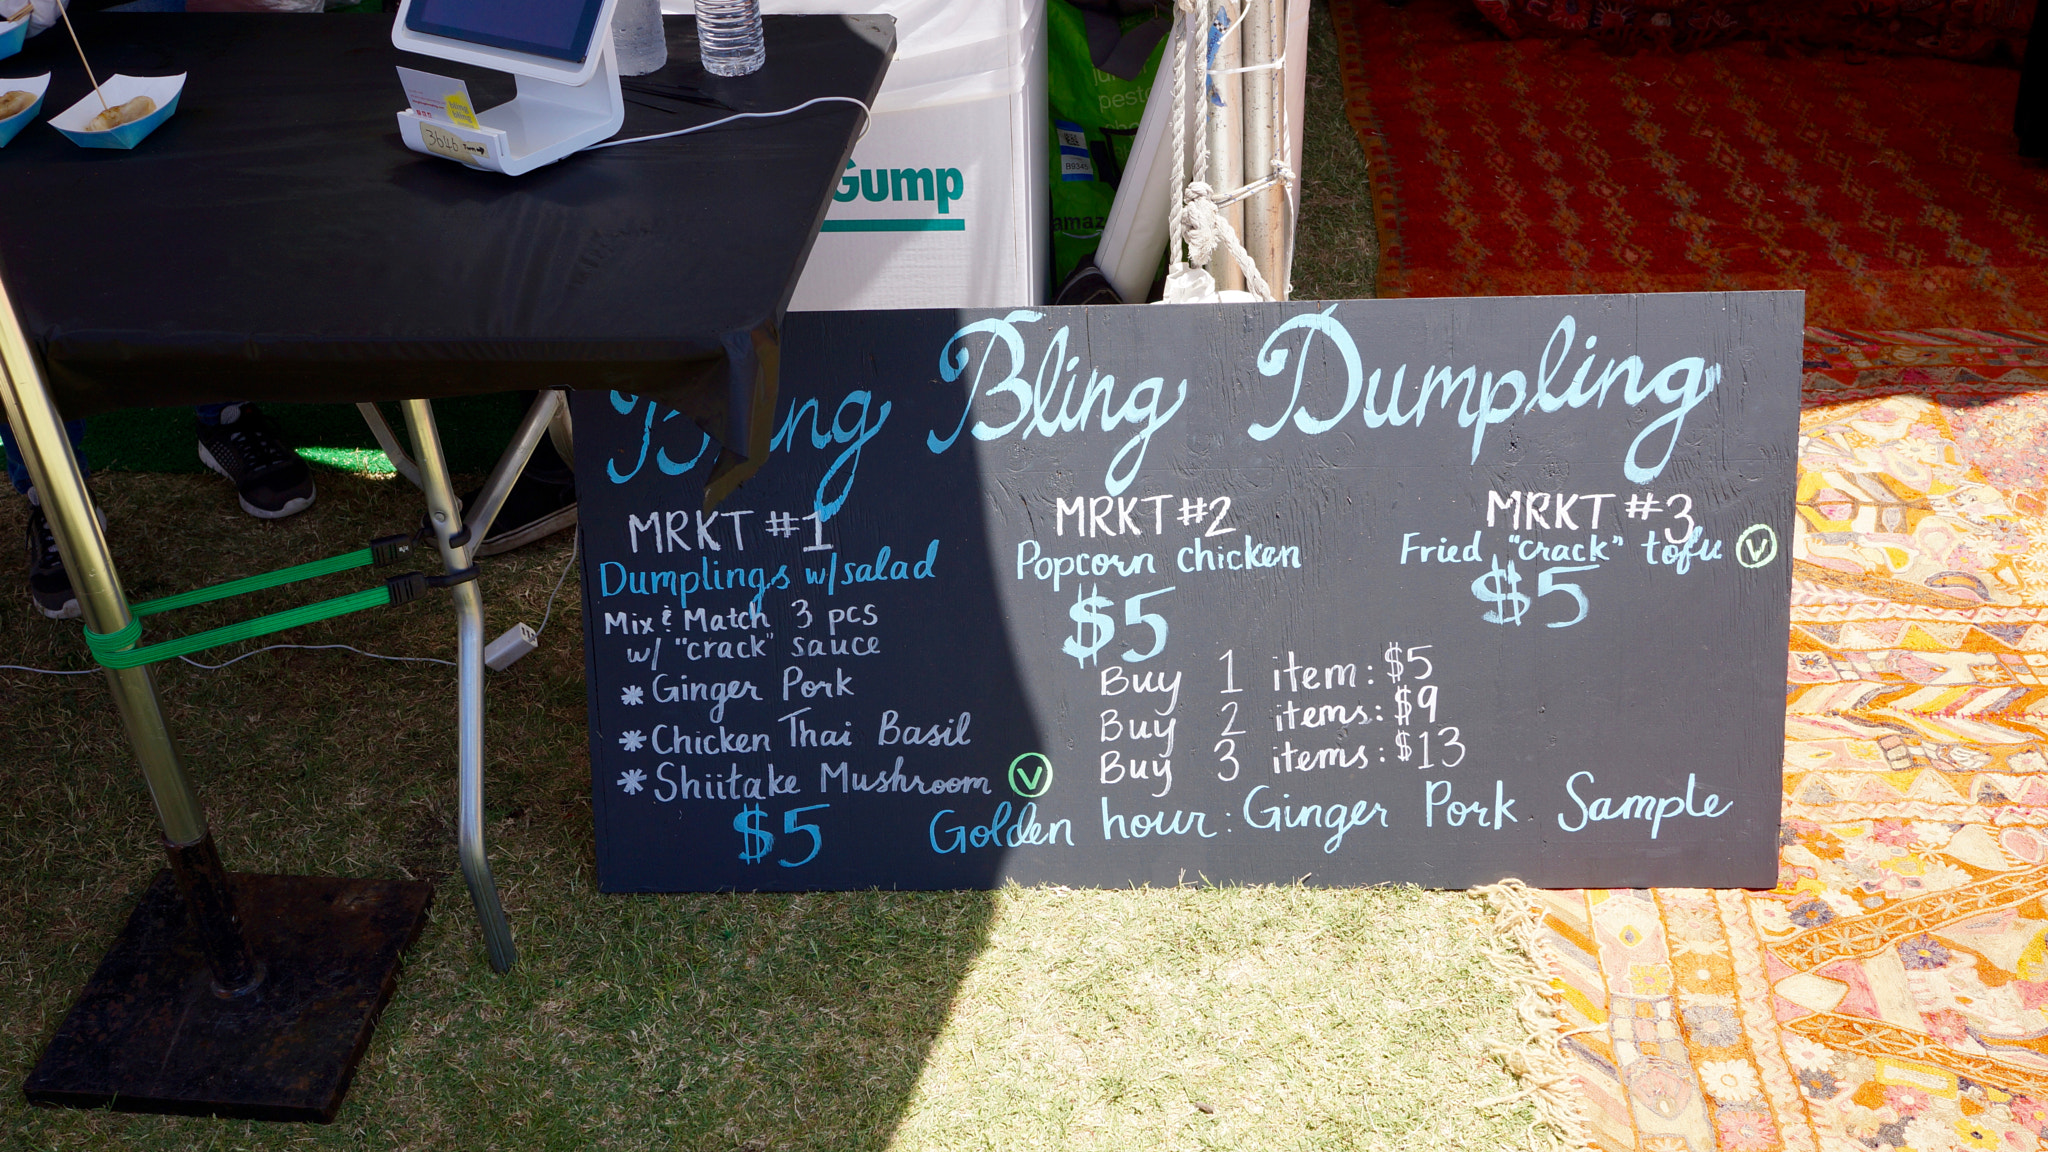 bling
bling
3b4b Turn
Gump
pesto
B9345
amaz
Bling Bling Dumpling
MRKT #1
Dumplings w/salad
Mix & Match 3 pcs
w/ "crack" sauce
* Ginger Pork
* Chicken Thai Basil
* Shiitake Mushroom V
$5
MRKT #2
Popcorn chicken
$5
MRKT #3
Fried "crack" tofu V
$5
Buy 1 item: $5
Buy 2 items: $9
Buy 3 items: $13
Golden hour: Ginger Pork Sample